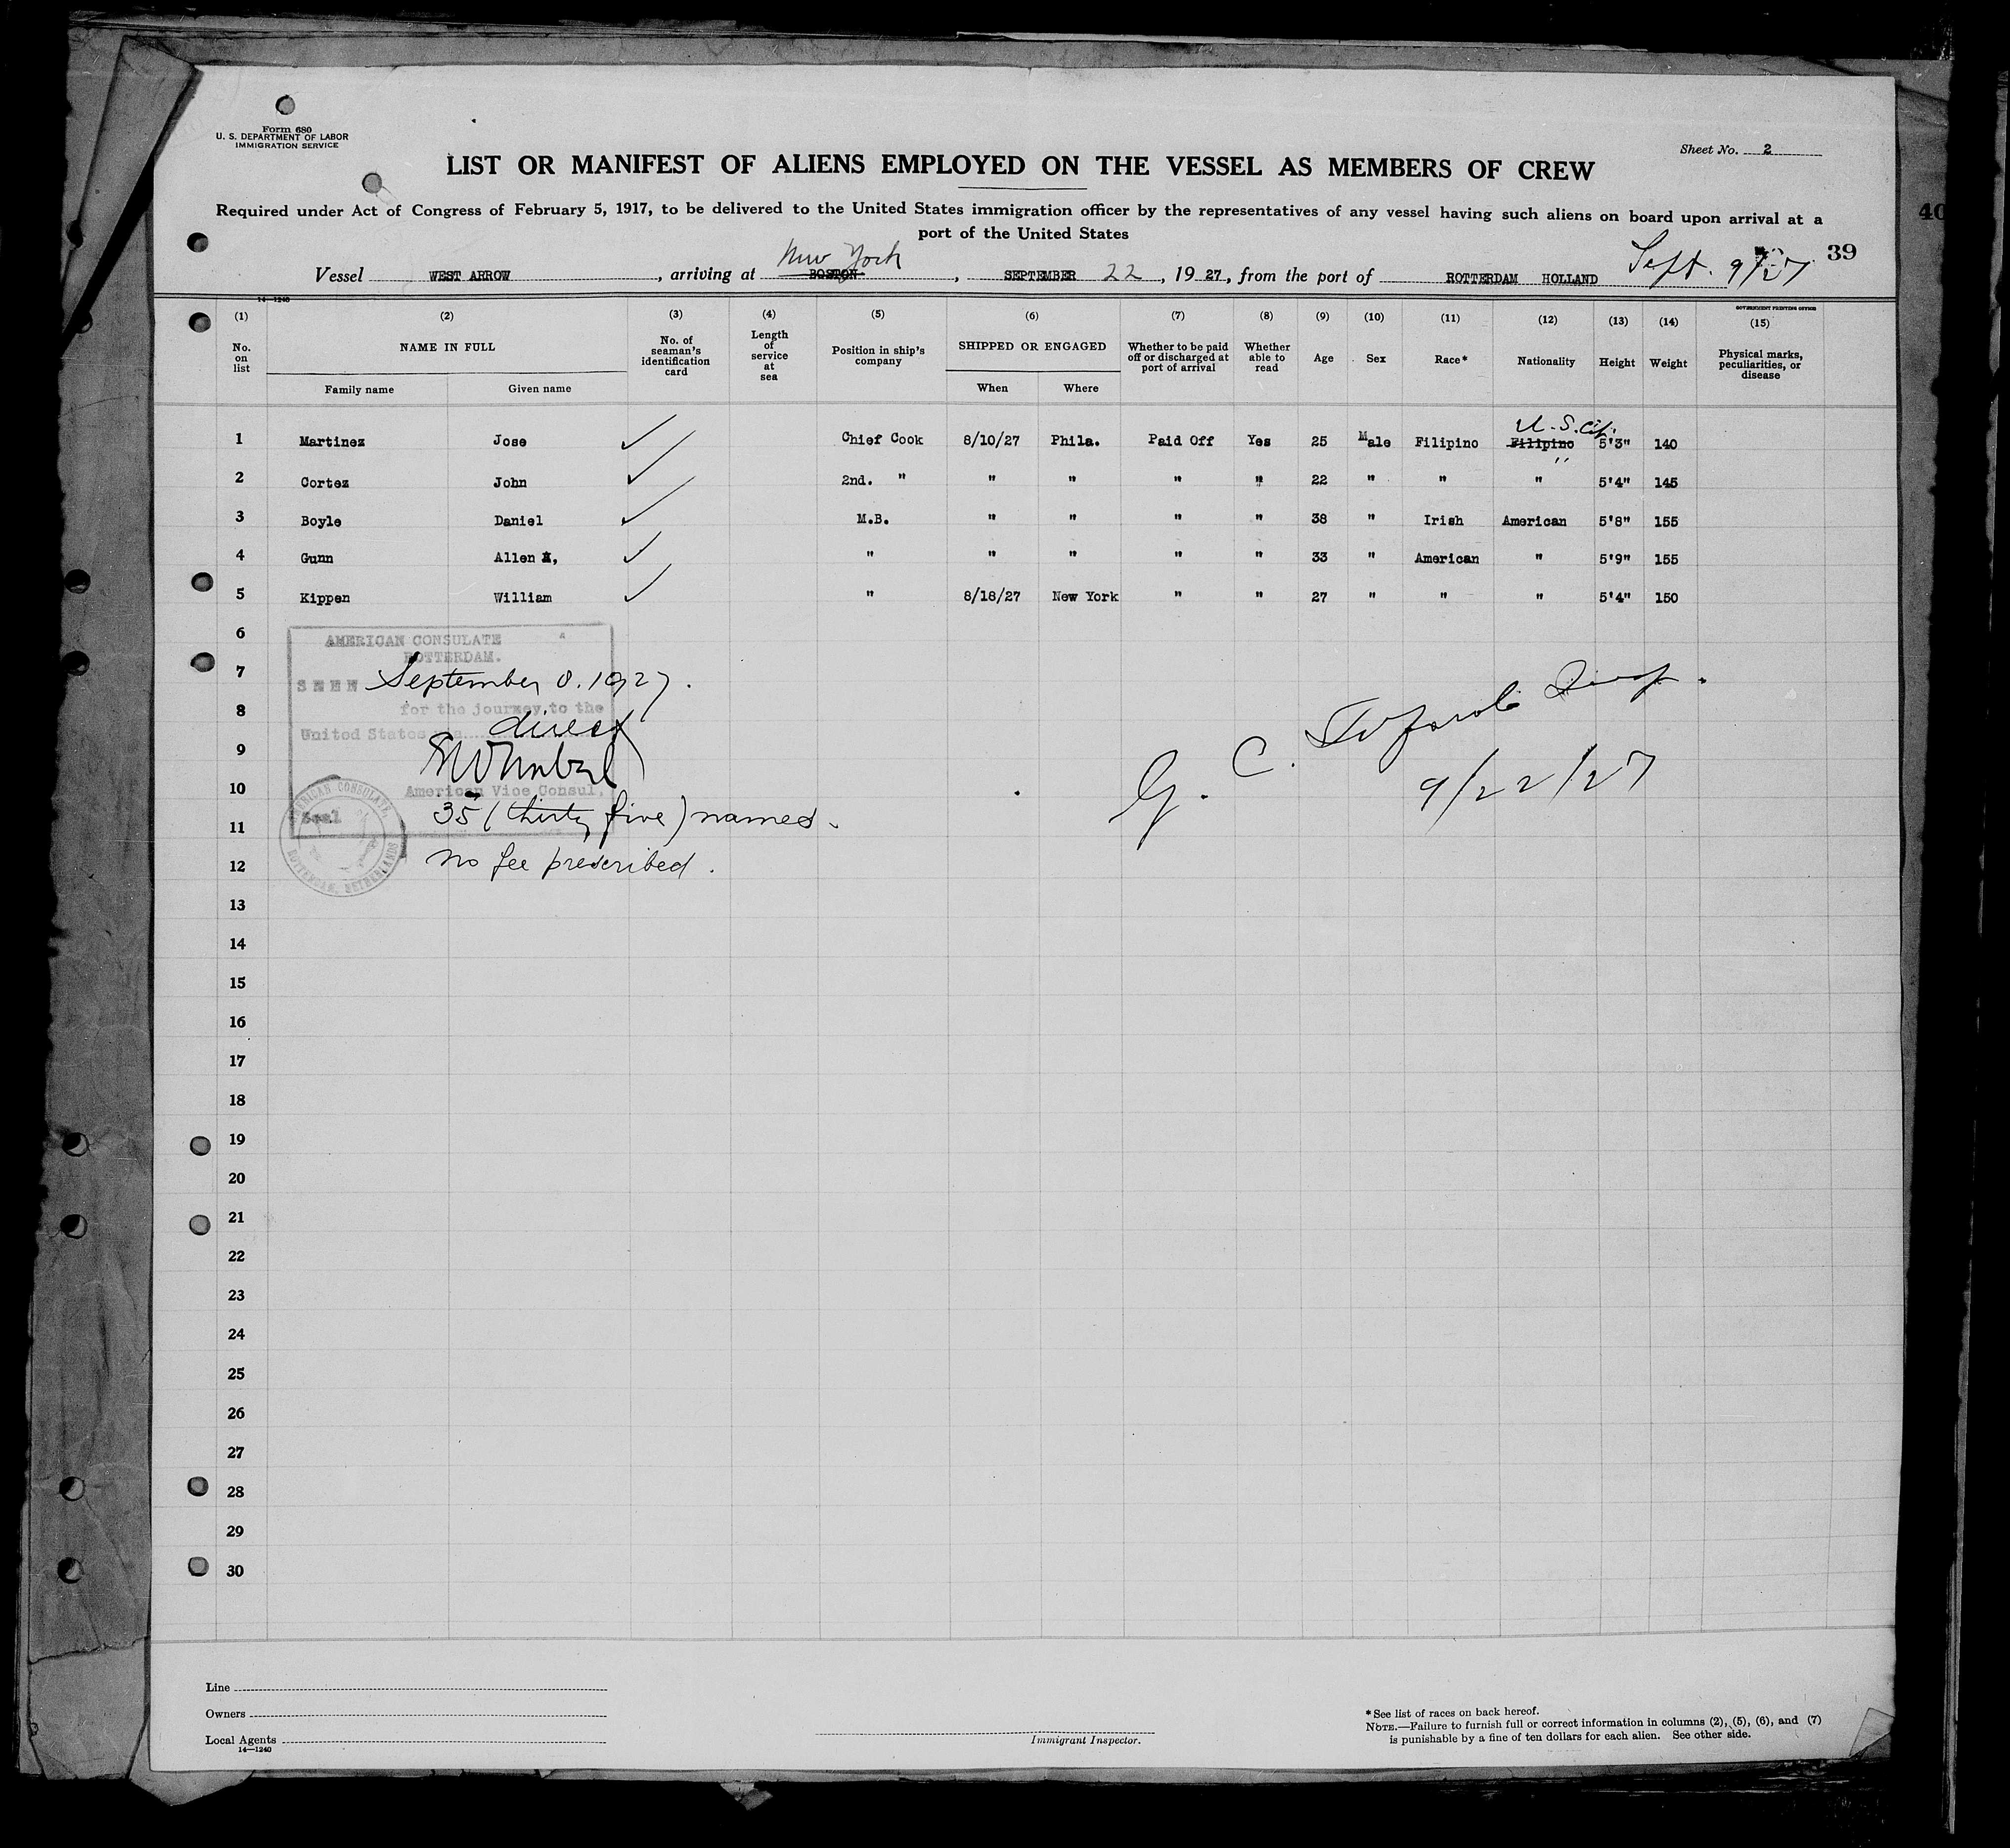 Form 680
U. S. DEPARTMENT OF LABOR
IMMIGRATION SERVICE
Sheet No. 2
LIST OR MANIFEST OF ALIENS EMPLOYED ON THE VESSEL AS MEMBERS OF CREW
Required under Act of Congress of February 5, 1917, to be delivered to the United States immigration officer by the representatives of any vessel having such aliens on board upon arrival at a
port of the United States
40
39
New York
Vessel WEST ARROW, arriving at BOSTON, SEPTEMBER 22, 19 27, from the port of ROTTERDAM HOLLAND Sept. 9/27
14—1240
GOVERNMENT PRINTING OFFICE
(1) (2) (3) (4) (5) (6) (7) (8) (9) (10) (11) (12) (13) (14) (15)
No. on list NAME IN FULL No. of seaman's identification card Length of service at sea Position in ship's company SHIPPED OR ENGAGED Whether to be paid off or discharged at port of arrival Whether able to read Age Sex Race* Nationality Height Weight Physical marks, peculiarities, or disease
Family name Given name When Where
U.S. Cit.
1 Martinez Jose Chief Cook 8/10/27 Phila. Paid Off Yes 25 Male Filipino Filipino 5'3" 140
"
2 Cortez John 2nd. " " " " " 22 " " " 5'4" 145
3 Boyle Daniel M.B. " " " " 38 " Irish American 5'8" 155
4 Gunn Allen , " " " " " 33 " American " 5'9" 155
5 Kippen William " 8/18/27 New York " " 27 " " " 5'4" 150
6
AMERICAN CONSULATE
ROTTERDAM.
7
SEEN September 8. 1927.
8
for the journey to the
United States direct
9
10
American Vice Consul,
Seal
35 (thirty five) names.
11
no fee prescribed.
12
AMERICAN CONSULATE, ROTTERDAM, NETHERLANDS
G. C.
9/22/27
13
14
15
16
17
18
19
20
21
22
23
24
25
26
27
28
29
30
Line
Owners
Local Agents
14—1240
Immigrant Inspector.
* See list of races on back hereof.
NOTE.—Failure to furnish full or correct information in columns (2), (5), (6), and (7)
is punishable by a fine of ten dollars for each alien. See other side.